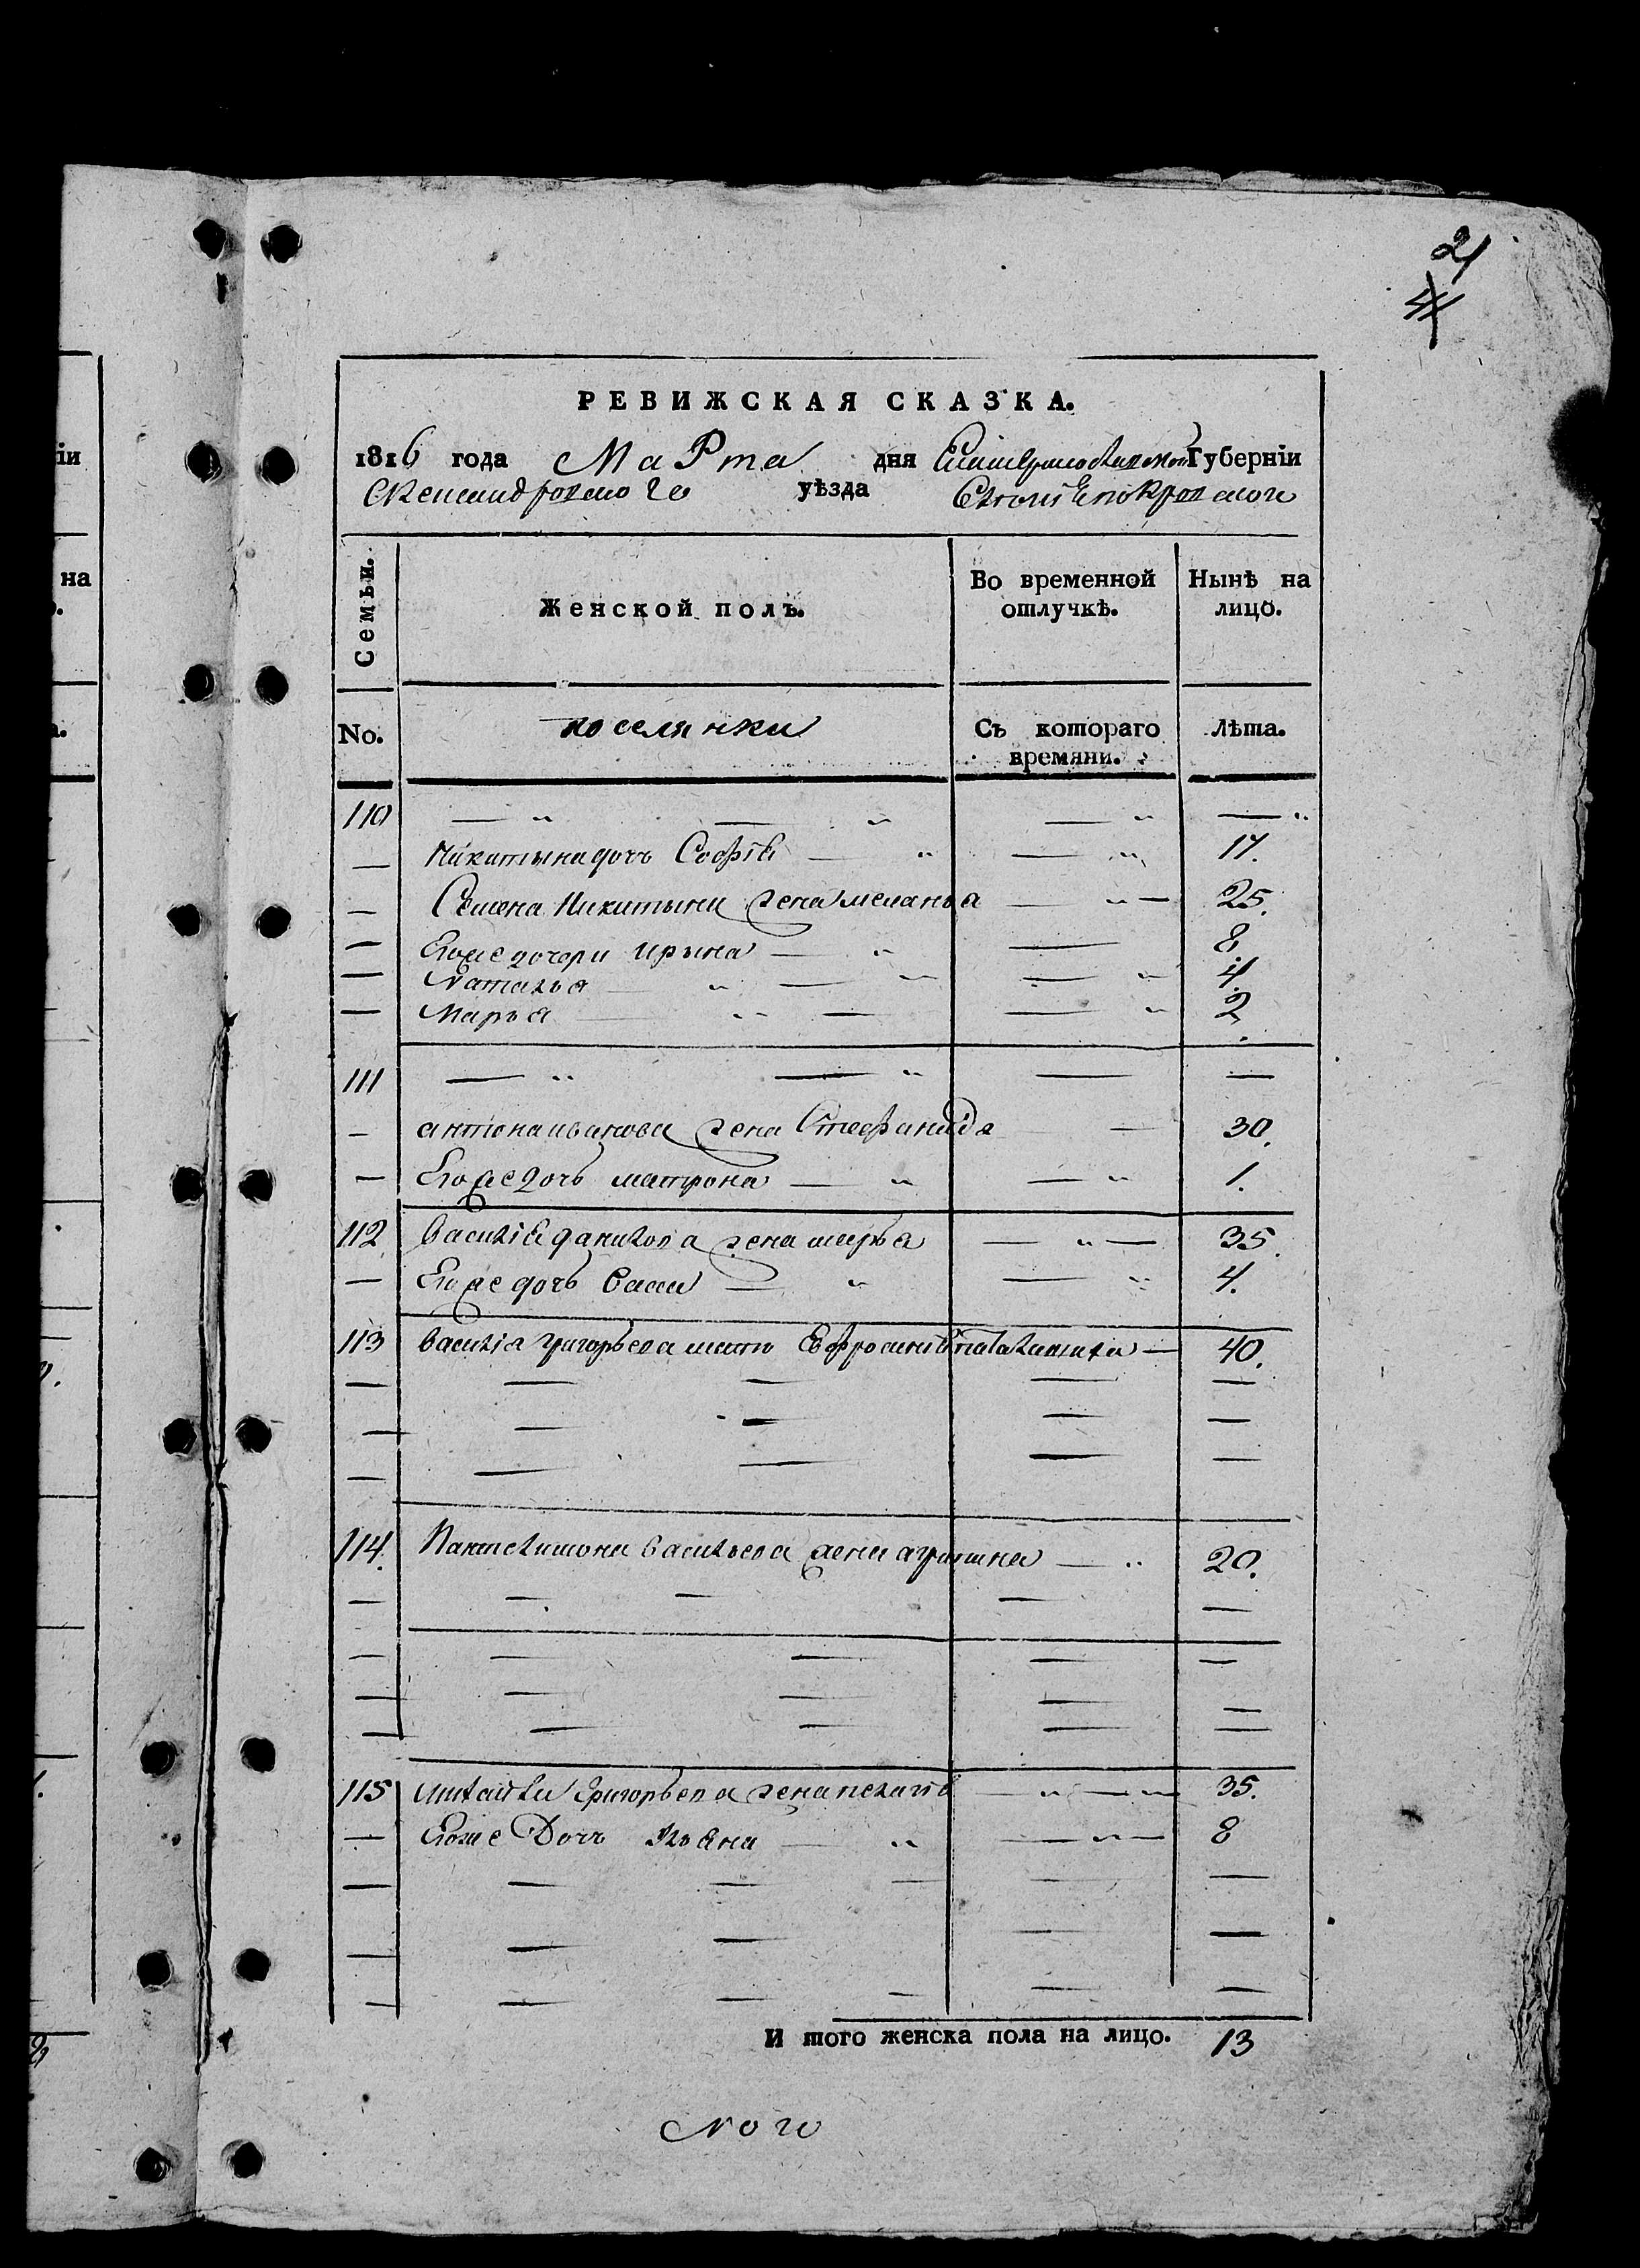 21
РЕВИЖСКАЯ СКАЗКА.
1816 года Марта дня Екатеринославской Губерніи
Александровского уѣзда Покровской
Семьи. Женской полъ. Во временной отлучкѣ. Нынѣ на лицо.
No. поселянки Съ котораго времяни. Лѣта.
110 — „ — „ — „ — „
— Никитына дочь Софія — „ — „ 17.
— Семена Никитына жена меланья — „ — 25.
— Егоже дочери Ирына — „ — 8.
— Наталья — „ — „ — „ 4.
— Марья — „ — — „ 2
111 — „ — „ — —
— антона иванова жена Стефанида — 30.
— Егоже дочь матрона — „ — „ 1.
112 василія данилова жена марья — „ — 35.
— Егоже дочь васса — „ — „ 4.
113 василія григорьева мать Евфросинія — 40.
— — — — —
— — — — —
— — — — —
114. Пантелимона васильева жена агрипина — „ 20.
— — — — —
— — — — —
— — — — —
— — — — —
115 михайлы григорьева жена пелагія — „ — „ 35.
— Егоже Дочь Ульяна — „ — „ — 8
— — — — — —
— — — — —
— — — — — —
И того женска пола на лицо. 13
ного
іи
на